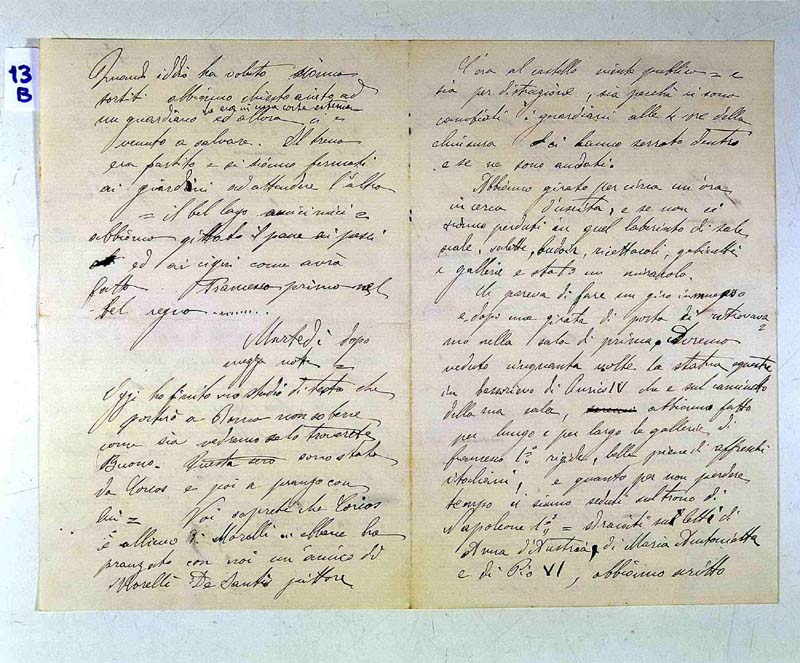 13
B
Quando iddio ha voluto siamo
sortiti abbiamo chiesto aiuto ad
un guardiano ed allora ci è
venuto a salvare. Il treno
era partito e si siamo fermati
ai giardini ad attendere l'altro
= il bel lago =
abbiamo gittato il pane ai pesci
ed ai cigni come avrà
fatto Francesco primo nel
bel regno ........
Martedì dopo
mezza notte =
Oggi ho finito uno studio di testa che
porterò a Roma non so bene
come sia vedremo se lo troverete
Buono. Questa sera sono stata
da Corcos e poi a pranzo con
lui = Voi saprete che Corcos
è allievo di Morelli .. ebbene ha
pranzato con noi un amico di
Morelli De Sanctis pittore
C'era al castello niente publico = e
sia per distrazione, sia perché si sono
i guardiani alle 4 ore della
chiusura ci hanno serrato dentro
e se ne sono andati.
Abbiamo girato per circa un'ora
in cerca d'uscita, e se non ci
siamo perduti in quel laberinto di sale
scale, salette, budoir, ricettacoli, gabinetti
e gallerie è stato un miracolo.
Mi pareva di fare un giro immenso
e dopo una girata di porta ci ritrovava
mo nella sala di prima. Avremo
veduto cinquanta volte la statua equestre
in bassorilievo di Enrico IV che è sul caminetto
della sua sala, abbiamo fatto
per lungo e per largo le gallerie di
Francesco 1º rigide, belle piene di affreschi
italiani, e quanto per non perdere
tempo ci siamo seduti sul trono di
Napoleone 1º = sdraiati sui letti di
Anna d'Austria, di Maria Antonietta
e di Pio VI, abbiamo scritto